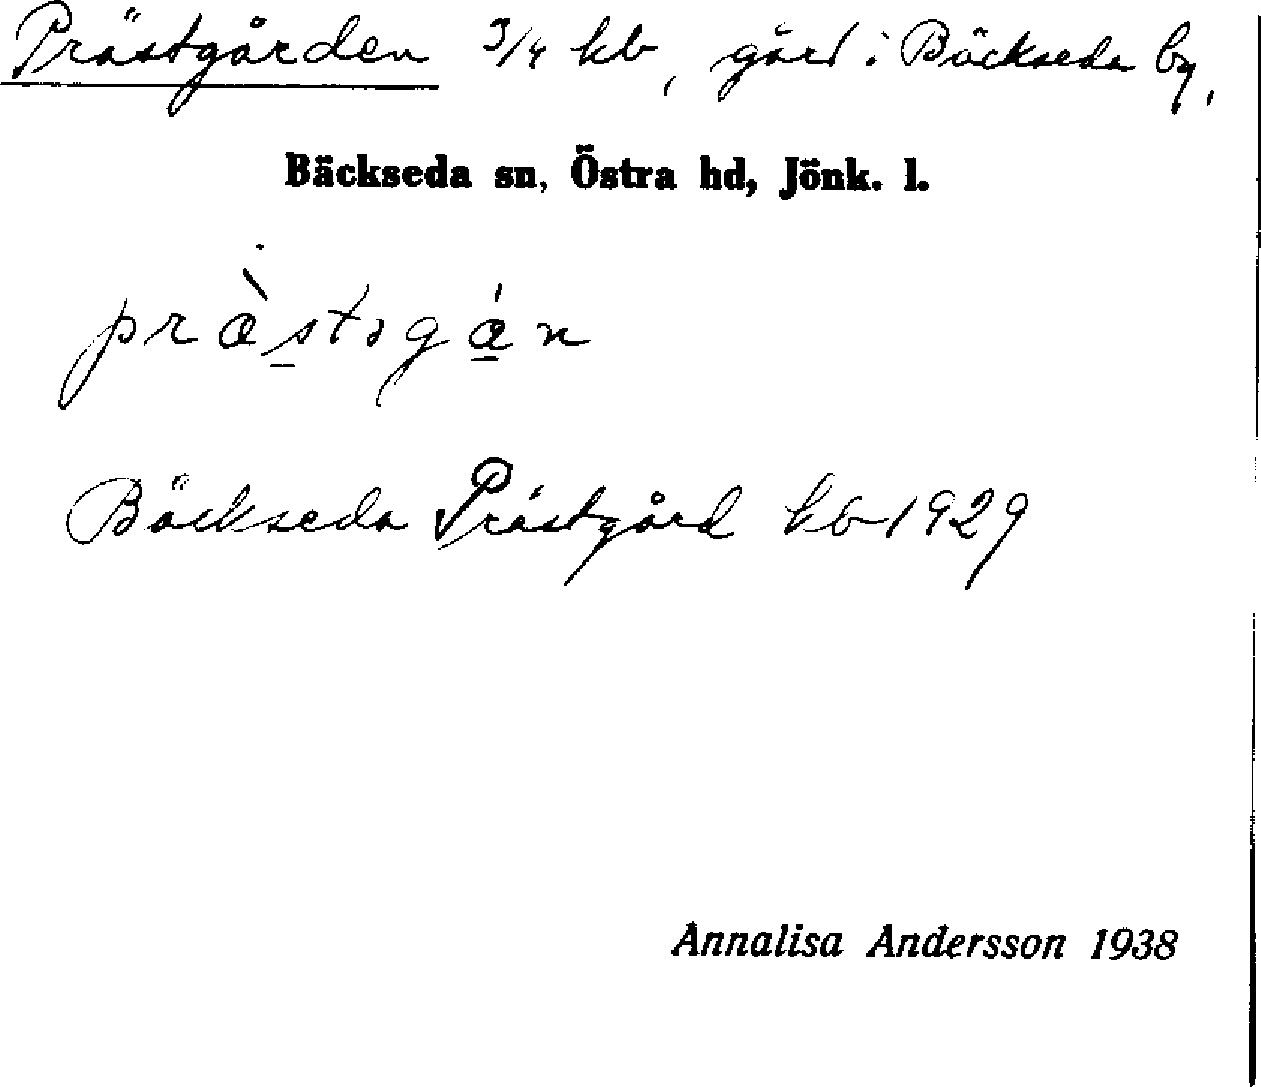 Prästgården 3/4 kb, gård i Bäckseda by,
Bäckseda sn, Östra hd, Jönk. l.
Bäckseda Prästgård kb 1929
Annalisa Andersson 1938